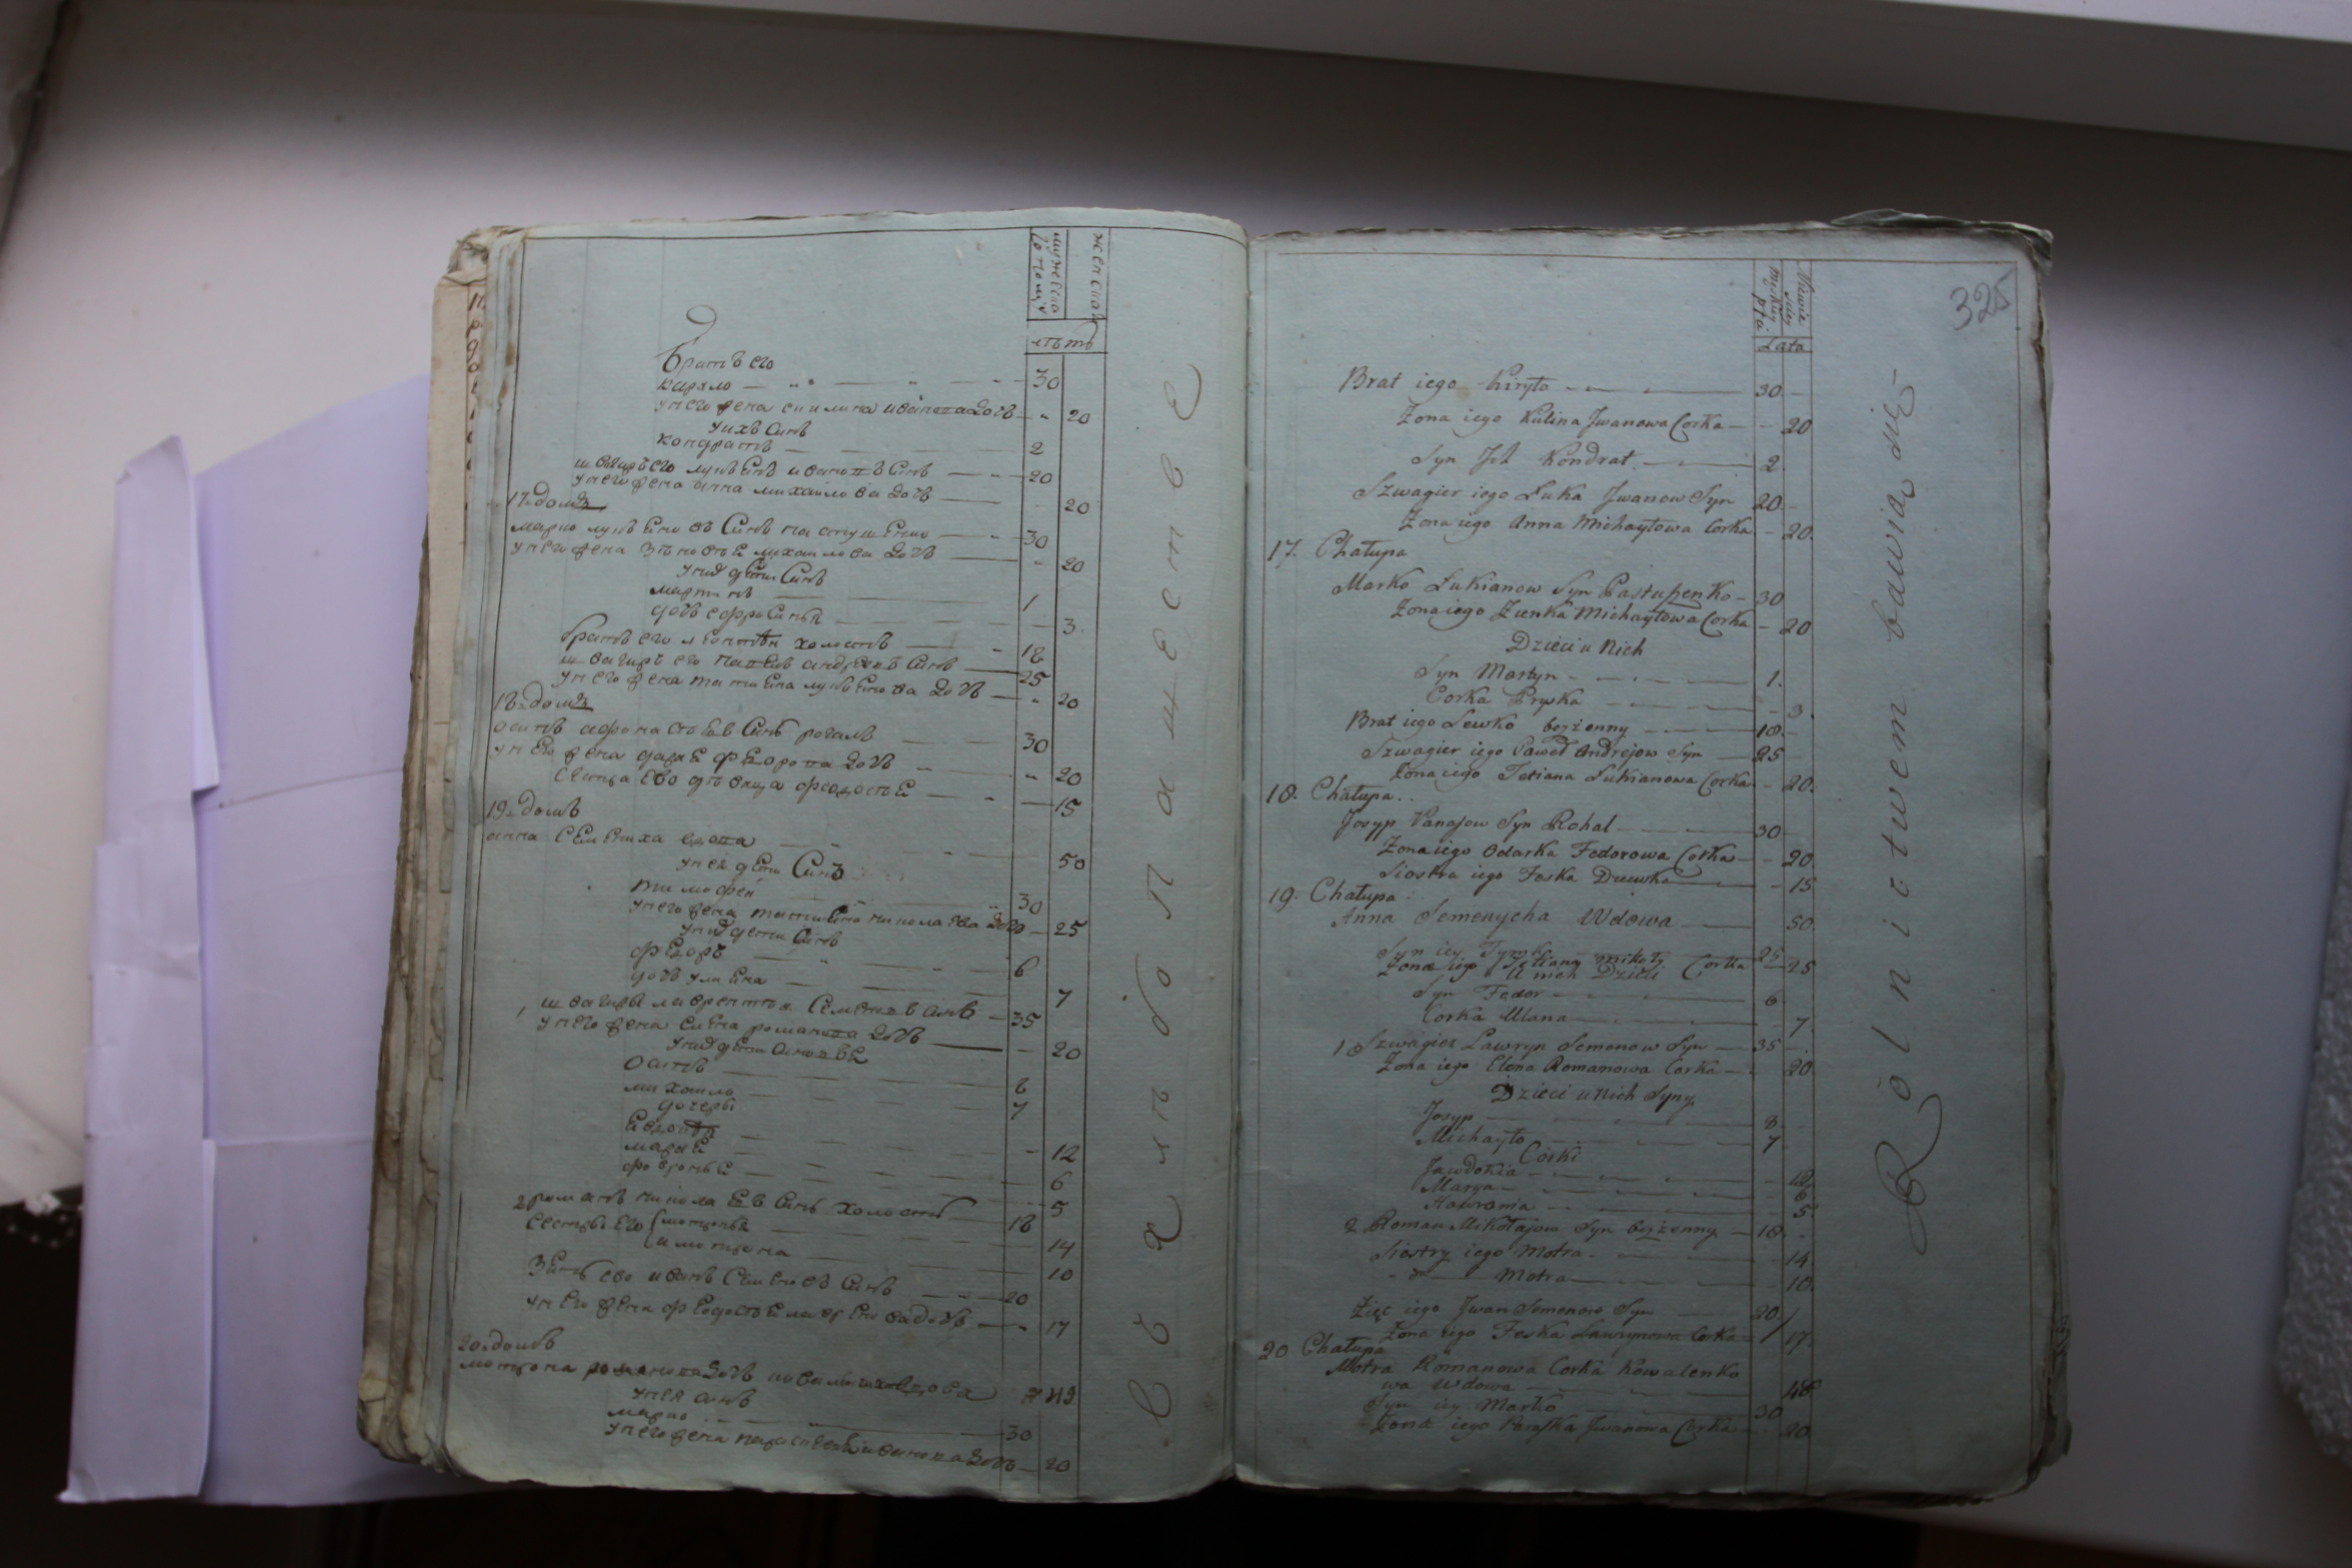 мужеска
женска
лѣтъ
Братъ его
кирило 30
у него жена акилина иванова дочь 20
у ихъ синъ
кондратъ 2
швагиръ его лукъянъ ивановъ синъ 20
у него жена анна михайлова дочь 20
17. домъ
марко лукъяновъ синъ пастушенко 30
у него жена зѣновѣя михайлова дочь 20
у нихъ дети синъ
мартинъ 1
дочь ефросинья 3
братъ его леонтѣй холостъ 18
швагиръ его павелъ андреевъ синъ 25
у него жена татияна лукъянова дочь 20
18. домъ
осипъ афонастевъ синъ рогаль 30
у него жена дарья федорова дочь 20
сестра ево дѣвица феодостья 15
19. домъ
анна семениха вдова 50
у нея дети синъ
тимофей 30
у него жена татияна николаева дочь 25
у нихъ дети синъ
федоръ 6
дочь улияна 7
1 швагиръ лаврентѣй семеновъ синъ 35
у него жена елена романова дочь 20
у нихъ дети синовья
осипъ 8
михайло 7
дочеры
евдокѣя 12
марья 6
февронья 5
2 романъ николаевъ синъ холостъ 18
сестры его мотронья 14
и мотрона 10
зять ево иванъ семеновъ синъ 20
у него жена феодостья лавренова дочь 17
20. домъ
мотрона романова дочь вдова 49
у нея синъ
марко 30
у него жена параскевия иванова дочь 20
въ хлѣбопашестве
325
Męskiey
Lata
Brat iego Kiryło 30
Zona iego Kulina Jwanowa Corka 20
Syn Jch Kondrat 2
Szwagier iego Łuka Jwanow Syn 20
Zona iego Anna Michayłowa Corka 20
17. Chałupa
Marko Łukianow Syn Pastuszenko 30
Zona iego Zienka Michayłowa Corka 20
Dzieci u Nich
Syn Martyn 1
Corka Pryska 3
Brat iego Lewko bezżenny 18
Szwagier iego Paweł Andrejow Syn 25
Zona iego Tetiana Łukianowa Corka 20
18. Chałupa
Josyp Panasow Syn Rohal 30
Zona iego Odarka Fedorowa Corka 20
Siostra iego Foska Dziewka 15
19. Chałupa
Anna Semenycha Wdowa 50
Syn iey Tymko 25
Zona iego Tetiana Mikoły Corka 25
U nich Dzieci
Syn Fedor 6
Corka Ulana 7
1 Szwagier Ławryn Semenow Syn 35
Zona iego Elena Romanowa Corka 20
Dzieci u Nich Syny
Josyp 8
Michayło 7
Corki
Jawdokia 12
Marya 6
Hawronia 5
2 Roman Mikołajow Syn bezżenny 18
Siostry iego Motra 14
Motra 10
Zięc iego Jwan Semenow Syn 20
Zona iego Feska Ławrynowa Corka 17
20 Chałupa
Motra Romanowa Corka Kowalenko
wa Wdowa 48
Syn iey Marko 30
Zona iego Paraska Jwanowa Corka 20
Rolnictwem bawią się